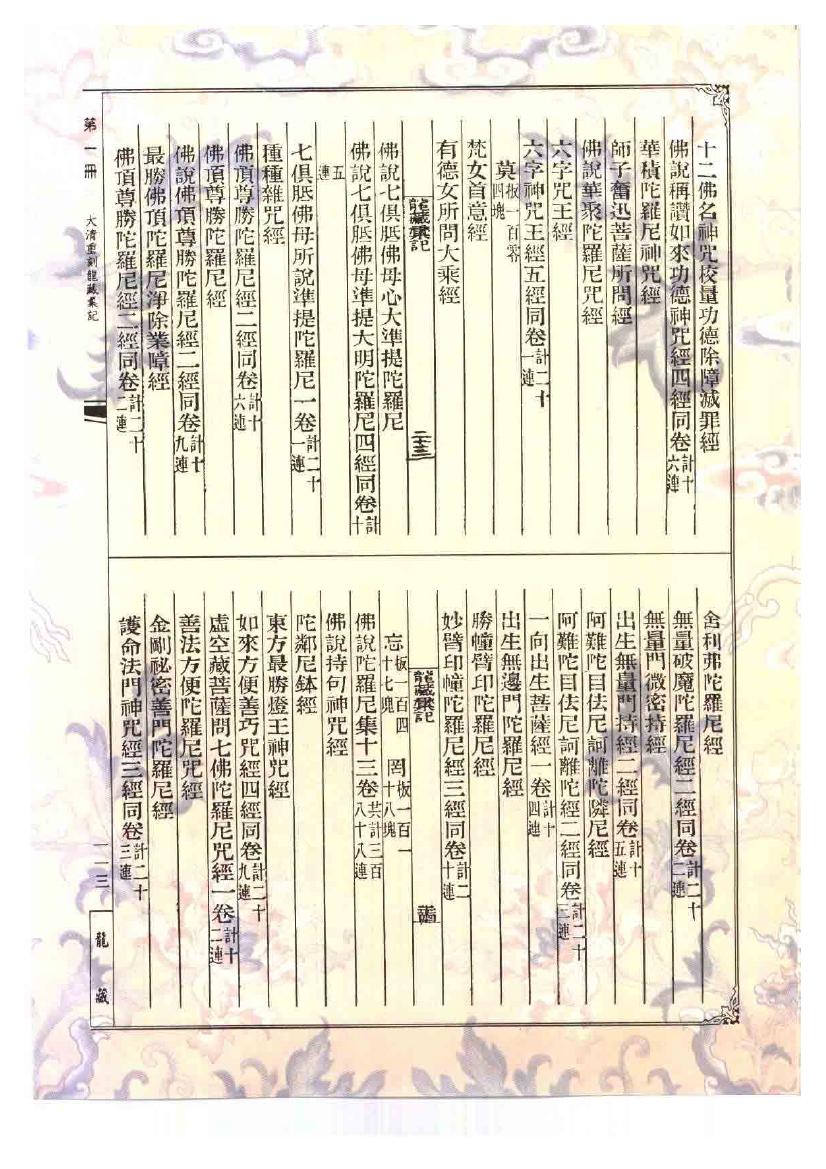 十二佛名神咒挍量功德除障滅罪經
佛說稱讚如來功德神咒經四經同卷計十六連
華積陀羅尼神咒經
師子奮迅菩薩所問經
佛說華聚陀羅尼咒經
六字咒王經
六字神咒王經五經同卷計二十一連
莫板一百零四塊
梵女首意經
有德女所問大乘經
龍藏彙記
佛說七俱胝佛母心大準提陀羅尼
佛說七俱胝佛母準提大明陀羅尼四經同卷計十
五連
七俱胝佛母所說準提陀羅尼一卷計二十一連
種種雜咒經
佛頂尊勝陀羅尼經二經同卷計十六連
佛頂尊勝陀羅尼經
佛說佛頂尊勝陀羅尼經二經同卷計十九連
最勝佛頂陀羅尼淨除業障經
佛頂尊勝陀羅尼經二經同卷計二十二連
舍利弗陀羅尼經
無量破魔陀羅尼經二經同卷計二十二連
無量門微密持經
出生無量門持經二經同卷計十五連
阿難陀目佉尼訶離陀隣尼經
阿難陀目佉尼訶離陀經二經同卷計二十三連
一向出生菩薩經一卷計十四連
出生無邊門陀羅尼經
勝幢臂印陀羅尼經
妙臂印幢陀羅尼經三經同卷計二十連
龍藏彙記
忘板一百四十七塊 罔板一百一十八塊
佛說陀羅尼集十三卷共計三百八十八連
佛說持句神咒經
陀鄰尼鉢經
東方最勝燈王神咒經
如來方便善巧咒經四經同卷計二十九連
虛空藏菩薩問七佛陀羅尼咒經一卷計十二連
善法方便陀羅尼咒經
金剛祕密善門陀羅尼經
護命法門神咒經三經同卷計二十三連
第一冊
大清重刻龍藏彙記
一一三
龍藏